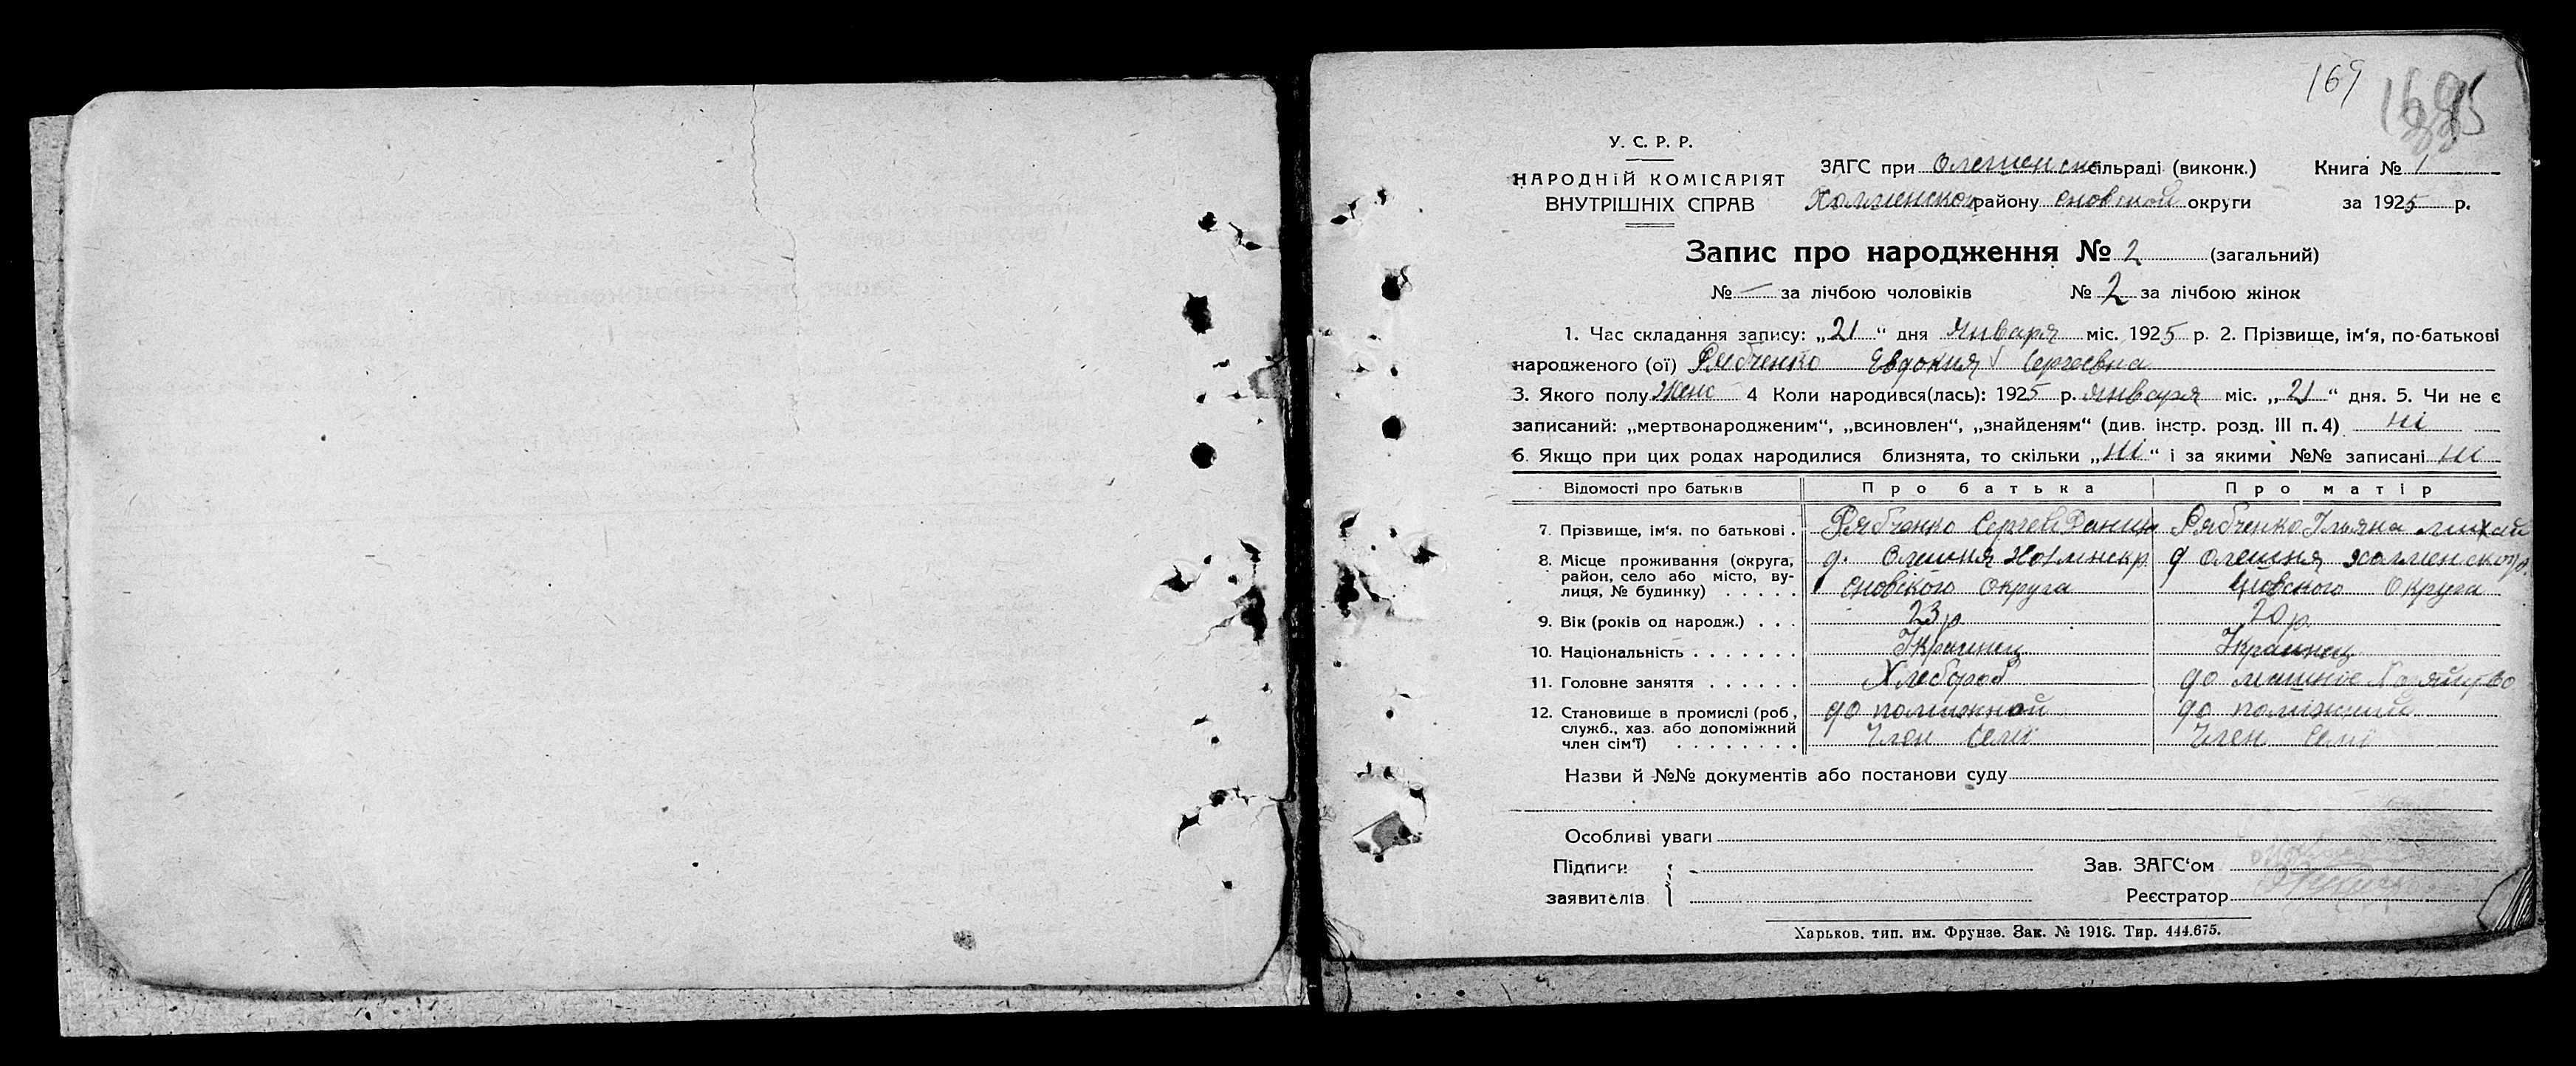 169
У. С. Р. Р.
НАРОДНІЙ КОМІСАРІЯТ
ВНУТРІШНІХ СПРАВ
ЗАГС при Олешенск сільраді (виконк.) Книга № 1
Холменской району Сновской округи за 1925 р.
Запис про народження № 2 (загальний)
№ — за лічбою чоловіків № 2 за лічбою жінок
1. Час складання запису: „21“ дня Января міс. 1925 р. 2. Прізвище, ім‘я, по-батькові
народженого (ої) Рябченко Евдокия Сергеевна
3. Якого полу Жено 4 Коли народився(лась): 1925 р. января міс. „21“ дня. 5. Чи не є
записаний: „мертвонародженим“, „всиновлен“, „знайденям“ (див. інстр. розд. III п. 4) ні
6. Якщо при цих родах народилися близнята, то скільки „ні“ і за якими №№ записані ні
Відомості про батьків Про батька Про матір
7. Прізвище, ім‘я. по батькові . Рябченко Сергей Данил Рябченко Ульяна Михай
8. Місце проживання (округа, район, село або місто, вулиця, № будинку) . . . . .
д. Олешня Холменск р. д Олешня Холменског р.
Сновского Округа Сновского Округа
9. Вік (років од народж.) . . . 23 р. 20 р.
10. Національність . . . . . . . Украинец Украинец
11. Головне заняття . . . . . . Хлебороб до машнее
12. Становище в промислі (роб, служб., хаз. або допоміжний член сім‘ї) . . . . . . . .
до поміжной до поміжний
Член Семі Член Семі
Назви й №№ документів або постанови суду
Особливі уваги
Підписи
заявителів
Зав. ЗАГС‘ом
Реєстратор
Харьков. тип. им. Фрунзе. Зак. № 1918. Тир. 444.675.